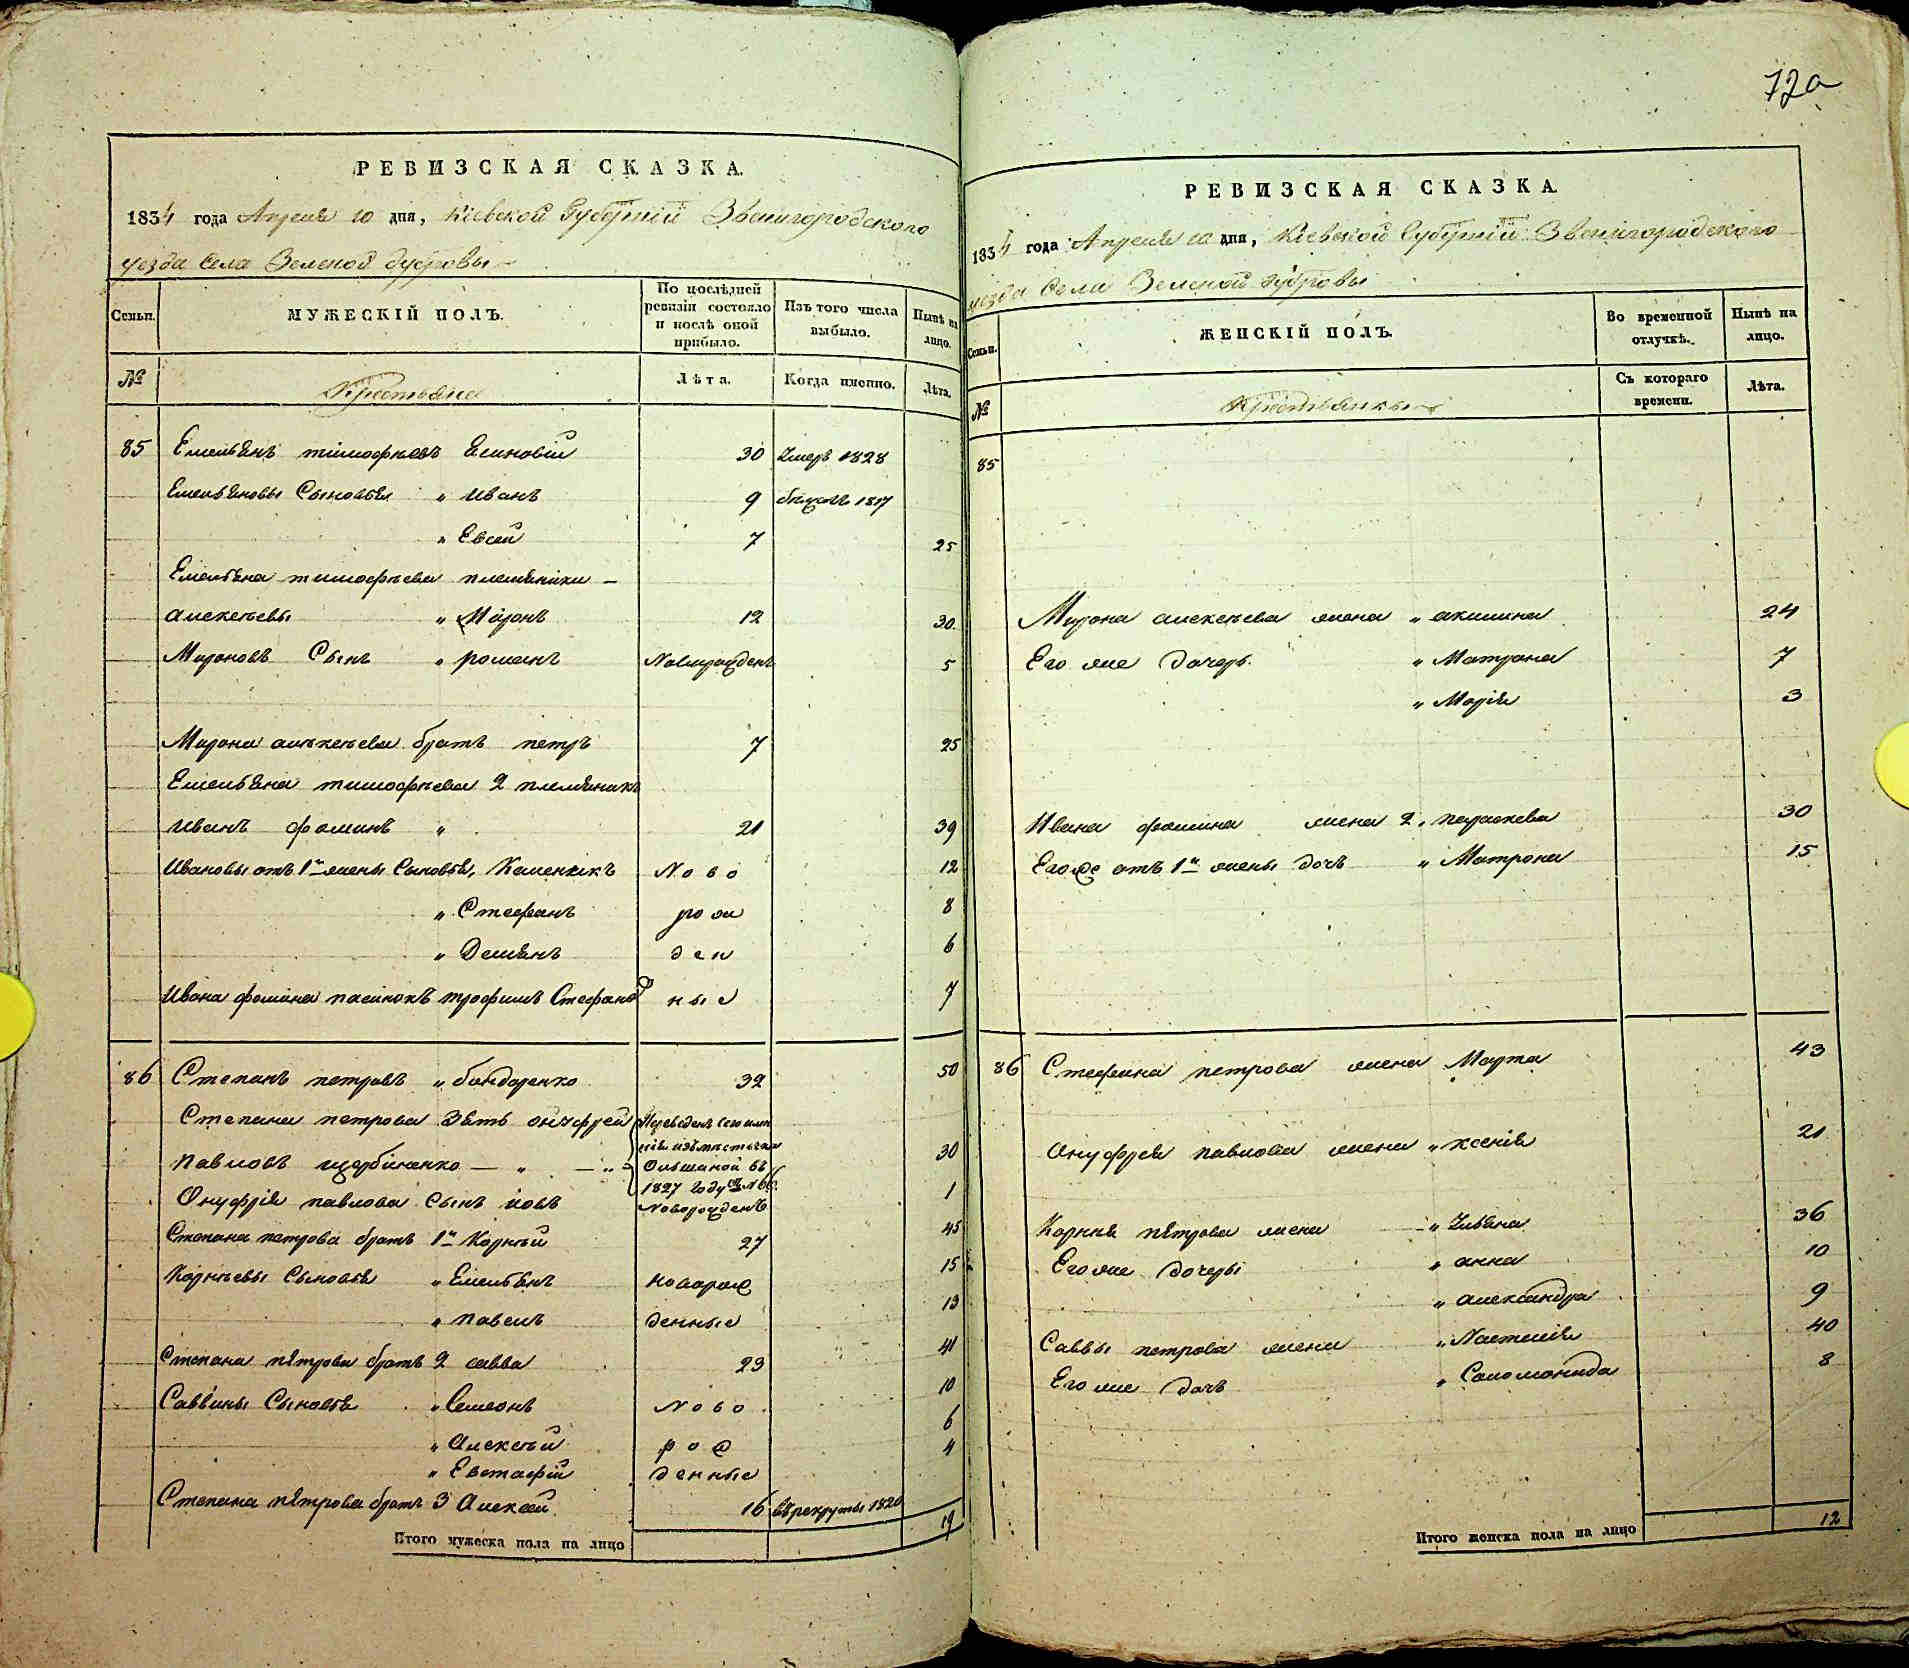 РЕВИЗСКАЯ СКАЗКА.
1834 года Апреля 10 дня, Кіевской Губерніи Звенигородского
уезда Села Зеленой дубровы
Семьи.
МУЖЕСКІЙ ПОЛЪ.
По послѣдней ревизіи состояло и послѣ оной прибыло.
Изъ того числа выбыло.
Нынѣ на лицо.
№
Крестьяне
Лѣта.
Когда именно.
Лѣта.
85 Емельянъ тимофѣевъ 30 Умеръ 1828
Емельяновы Сыновья " Иванъ 9 1817
" Евсей 7 25
Емельяна тимофѣева племяники
алексѣевы " Миронъ 12 30
Мироновъ Сынъ " романъ Новорожденъ 5
Мирона алексѣева братъ петръ 7 25
Емельяна тимофѣева 2 племяникъ
Иванъ фоминъ " 21 39
Ивановы отъ 1й жены Сыновья, Ново 12
" Стефанъ рож 8
" Демянъ ден 6
Ивана фомина пасинокъ трофимъ Стефановъ ные 7
86 Степанъ петровъ " бондаренко 32 50
Степана петрова Зять онуфрей Переведенъ
павловъ щербиненко — " — " 30
Ольшаной въ
1827 Году
Онуфрія павлова Сынъ іовъ Новорожденъ 1
Степана петрова братъ 1й Корнѣй 27 45
Корнѣевы Сыновья " Емельянъ новорож 15
" павелъ денные 13
Степана петрова братъ 2 савва 23 41
Саввины Сыновья " Семеонъ Ново 10
" Алексѣй рож 6
" Евстафій денные 4
Степана петрова братъ 3 Алексѣй 16 въ рекруты 1820
Итого мужеска пола на лицо 19
72а
РЕВИЗСКАЯ СКАЗКА.
1834 года Апреля 10 дня, Кіевской Губерніи Звенигородского
уезда Села Зеленой дубровы
Семьи.
ЖЕНСКІЙ ПОЛЪ.
Во временной отлучкѣ.
Нынѣ на лицо.
№
Крестьянки
Съ котораго времени.
Лѣта.
85
Мирона алексѣева жена " акилина 24
Его же дочерь " Матрона 7
" Марія 3
Ивана фомина жена 2, параскева 30
Его же отъ 1й жены дочь " Матрона 15
86 Стефана петрова жена Марта 43
Онуфрея павлова жена " ксенія 21
Корнѣя петрова жена " Ульяна 36
Его же дочери " анна 10
" александра 9
Саввы петрова жена " Настасія 40
Его же дочь " Соломонида 8
Итого женска пола на лицо 12